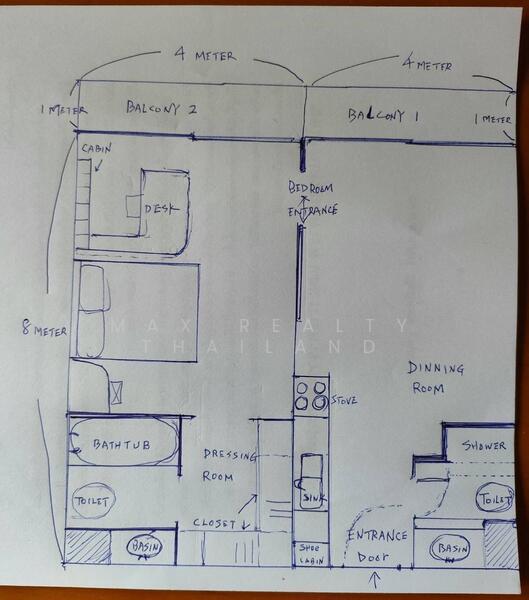 4 METER
4 METER
1 METER
BALCONY 2
BALCONY 1
1 METER
CABIN
DESK
BEDROOM
ENTRANCE
8 METER
MAX REALTY
THAILAND
DINNING
ROOM
STOVE
BATHTUB
DRESSING
ROOM
SHOWER
TOILET
SINK
TOILET
CLOSET
ENTRANCE
Door
BASIN
SHOE
CABIN
BASIN